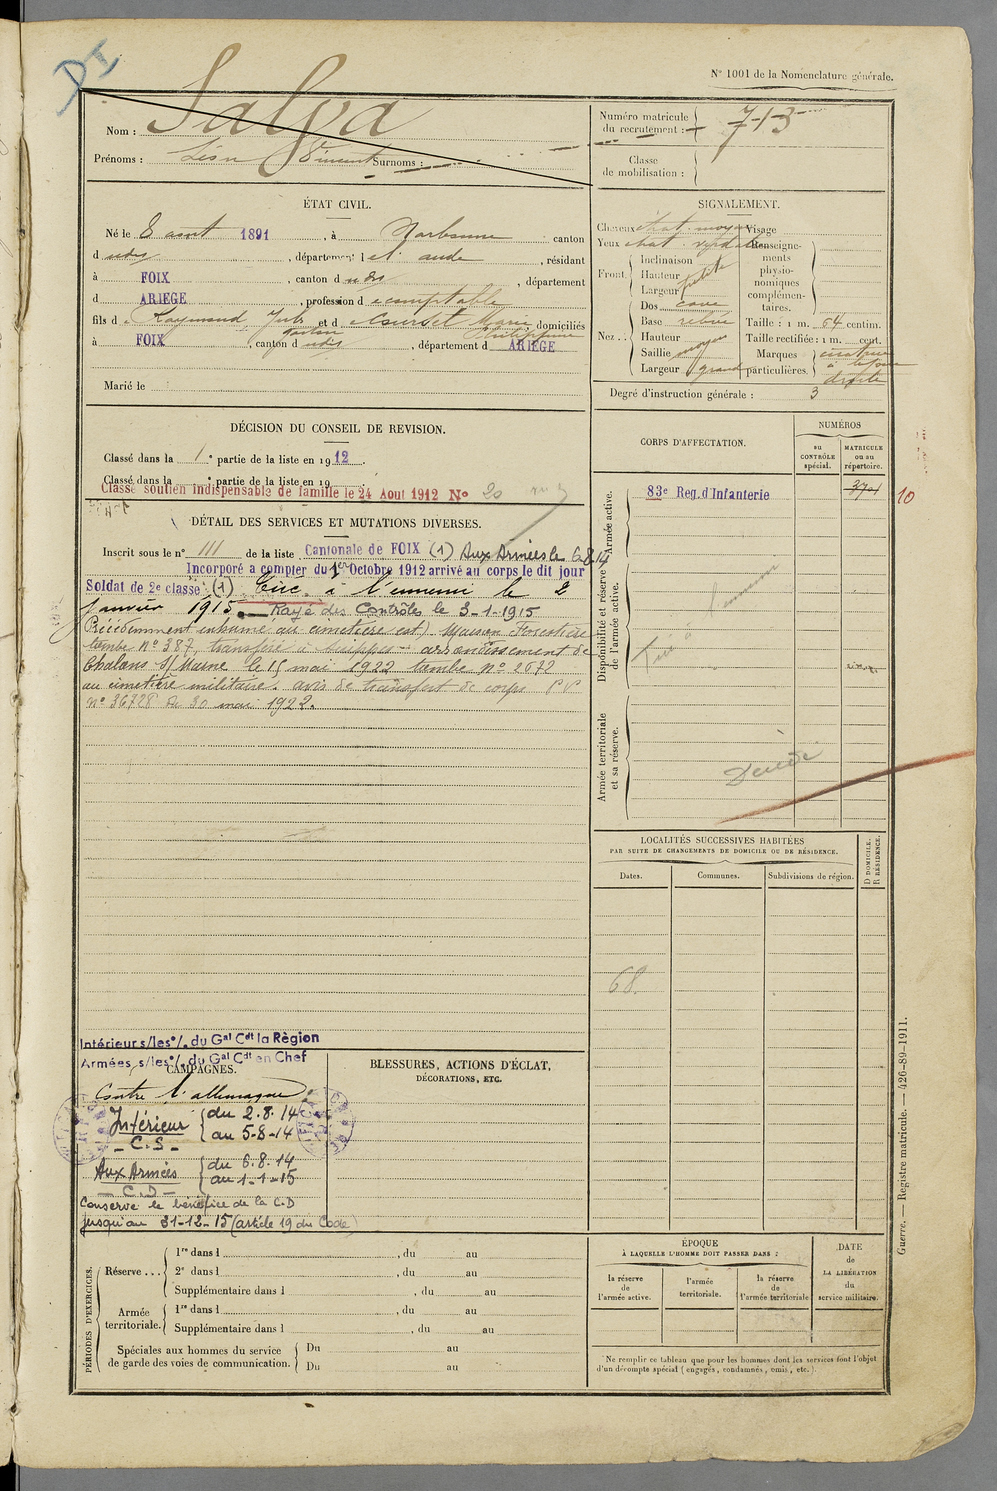 DI
N° 1001 de la Nomenclature générale.
Nom : Salga
Prénoms : Léon Vincent Surnoms :
Numéro matricule du recrutement : 713
Classe de mobilisation :
ÉTAT CIVIL.
Né le 8 aout 1891, à Narbonne canton
d udis, département de l' aude, résidant
à FOIX, canton d udis, département
d ARIEGE, profession d e comptable
fils d e Raymond Jules et d e Courset Marie domiciliés
à FOIX, canton d udis, département d ARIEGE
Marié le
SIGNALEMENT.
Cheveux chat. moyen Visage
Yeux chat. verdatre Renseignements physionomiques complémentaires.
Front. Inclinaison
Hauteur petite
Largeur
Nez .. Dos cave
Base relevé
Hauteur
Saillie moyen
Largeur grand
Taille : 1 m. 64 centim.
Taille rectifiée : 1 m. cent.
Marques particulières. cicatrice à droite
Degré d'instruction générale : 3
DÉCISION DU CONSEIL DE REVISION.
Classé dans la 1e partie de la liste en 1912.
Classé dans la e partie de la liste en 19
Classé soutien indispensable de famille le 24 Aout 1912 N° 20
DÉTAIL DES SERVICES ET MUTATIONS DIVERSES.
Inscrit sous le n° 111 de la liste Cantonale de FOIX (1) Aux Armées le 6.8.14
Incorporé a compter du 1er Octobre 1912 arrivé au corps le dit jour
Soldat de 2e classe (1) Tué à l'ennemi le 2
janvier 1915. Rayé des Contrôles le 3-1-1915
Précédemment inhumé au cimetière est) Maison Forestière
tombe N° 387, transféré à Suippes - arrondissement de
Chalons s/ Marne le 15 mai 1922 tombe n° 2672
au cimetière militaire. avis de transfert de corps P.V.
n° 36728 du 30 mai 1922.
CORPS D'AFFECTATION.
NUMÉROS
au CONTRÔLE spécial.
MATRICULE ou au répertoire.
Armée active.
83e Reg. d'Infanterie
10
Disponibilité et réserve de l'armée active.
Tué à
Armée territoriale et sa réserve.
Décédé
LOCALITÉS SUCCESSIVES HABITÉES
PAR SUITE DE CHANGEMENTS DE DOMICILE OU DE RÉSIDENCE.
Dates.
Communes.
Subdivisions de région.
D DOMICILE. R RÉSIDENCE.
68.
Intérieur s/les o/. du Gal Cdt la Règion
Armées s/les o/. du Gal Cdt en Chef
CAMPAGNES.
Contre l'allemagne
Intérieur du 2.8.14
C.S au 5-8-14
Aux Armées du 6.8.14
C.D au 1-1-15
Conserve le bénéfice de la C.D
jusqu'au 31-12-15 (article 19 du Code)
BLESSURES, ACTIONS D'ÉCLAT,
DÉCORATIONS, ETC.
PÉRIODES D'EXERCICES.
Réserve ... 1re dans l , du au
2e dans l , du au
Supplémentaire dans l , du au
Armée territoriale. 1re dans l , du au
Supplémentaire dans l , du au
Spéciales aux hommes du service de garde des voies de communication. Du au
Du au
ÉPOQUE
À LAQUELLE L'HOMME DOIT PASSER DANS :
la réserve de l'armée active.
l'armée territoriale.
la réserve de l'armée territoriale
DATE de LA LIBÉRATION du service militaire.
Ne remplir ce tableau que pour les hommes dont les services font l'objet
d'un décompte spécial (engagés, condamnés, omis, etc.).
Guerre. — Registre matricule. — 426-89-1911.